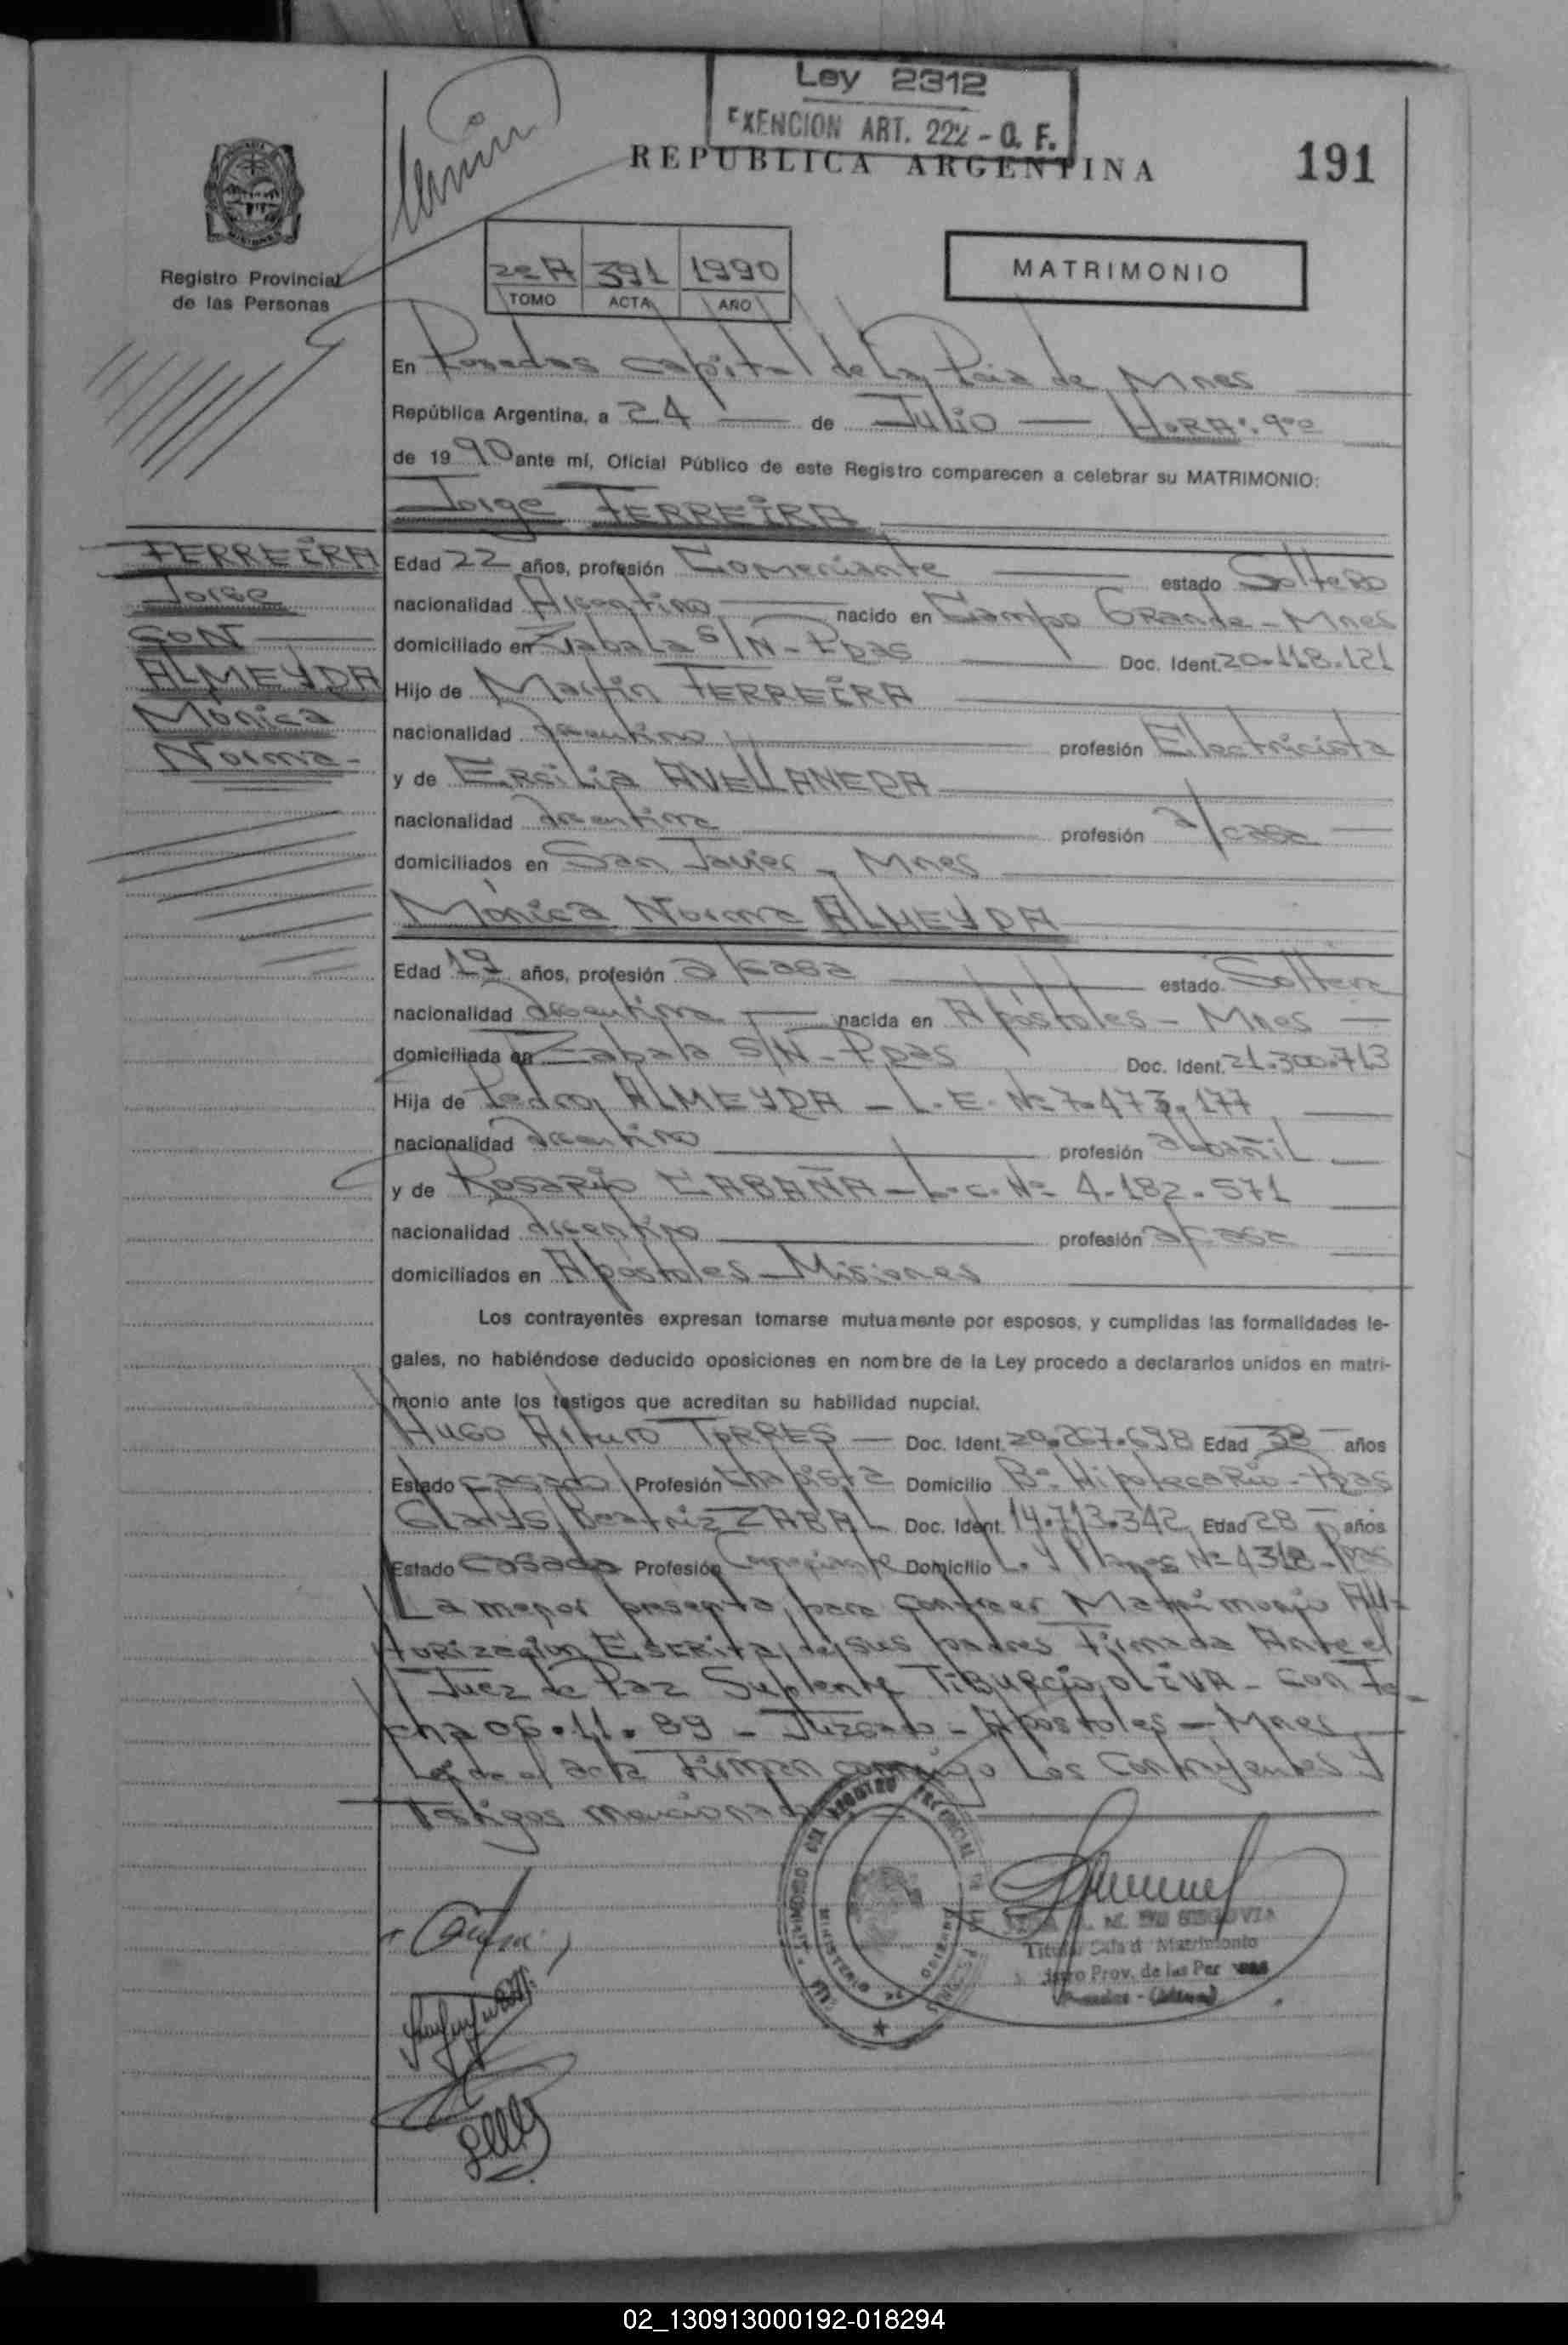 Ley 2312
EXENCION ART. 222 - O. F.
REPUBLICA ARGENTINA
191
Registro Provincial
de las Personas
2º A 391 1990
TOMO ACTA AÑO
MATRIMONIO
En Posadas capital de la Pcia de Mnes
República Argentina, a 24 de Julio HORA: 9
de 1990 ante mí, Oficial Público de este Registro comparecen a celebrar su MATRIMONIO:
Jorge FERREIRA
FERREIRA
Jorge
CON
ALMEYDA
Mónica
Norma
Edad 22 años, profesión Comerciante estado Soltero
nacionalidad Argentino nacido en Campo GRande - Mnes
domiciliado en Zabala S/N - Ppas Doc. Ident. 20.118.121
Hijo de Martin FERREIRA
nacionalidad Argentino profesión Electricista
y de ERcilia AVELLANEDA
nacionalidad Argentina profesión a/casa
domiciliados en San Javier - Mnes
Mónica Norma ALMEYDA
Edad 19 años, profesión a/casa estado Soltera
nacionalidad Argentina nacida en Apóstoles - Mnes
domiciliada en Zabala S/N - Ppas Doc. Ident. 21.300.713
Hija de Pedro ALMEYDA - L. E. Nº 7.473.177
nacionalidad Argentino profesión albañil
y de Rosario CABAÑA - L. C. Nº 4.182.571
nacionalidad Argentino profesión a/casa
domiciliados en Apóstoles - Misiones
Los contrayentes expresan tomarse mutuamente por esposos, y cumplidas las formalidades le-
gales, no habiéndose deducido oposiciones en nombre de la Ley procedo a declararlos unidos en matri-
monio ante los testigos que acreditan su habilidad nupcial.
HUGO Arturo TORRES Doc. Ident. 20.267.698 Edad 38 años
Estado casado Profesión Chapista Domicilio Bº Hipotecario - Ppas
Gladys Beatriz ZABAL Doc. Ident. 14.713.342 Edad 28 años
Estado casada Profesión Comerciante Domicilio L. y Planes Nº 4318 - Ppas
La menor presenta, para contraer Matrimonio AU-
TORIZACION ESCRITA, de sus padres Firmada Ante el
Juez de Paz Suplente TIBURCIO OLIVA - con Fe-
cha 06.11.89 - Juzgado - Apóstoles - Mnes
Leída el acta Firman conmigo Los Contrayentes y
Testigos mencionad
M. DE SEGOVIA
Titular Sala d Matrimonio
Prov. de las Per
02_130913000192-018294